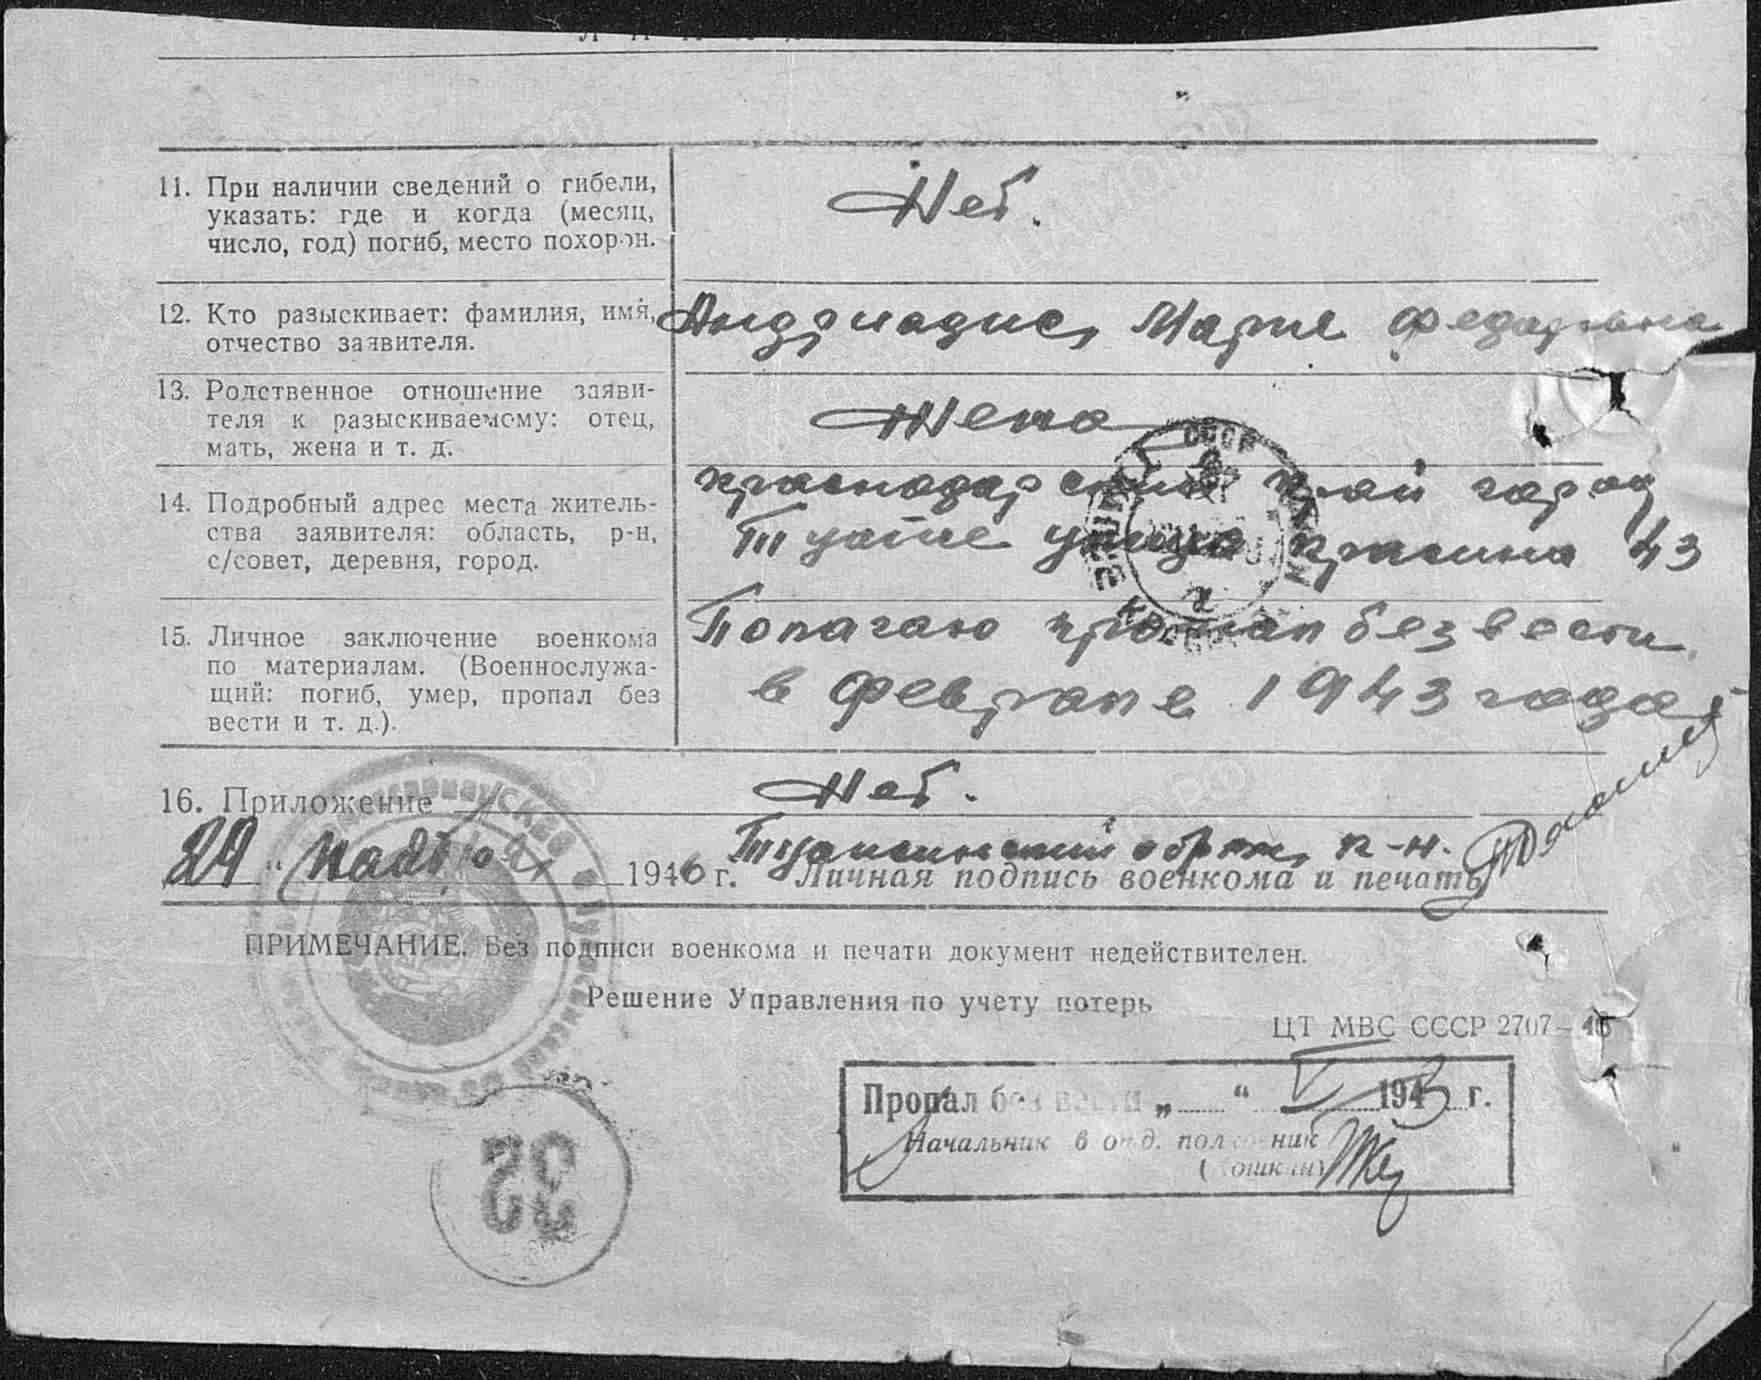 11. При наличии сведений о гибели,
указать: где и когда (месяц,
число, год) погиб, место похорон.
Нет.
12. Кто разыскивает: фамилия, имя,
отчество заявителя.
Андриадис, Марие Федаровна
13. Родственное отношение заяви-
теля к разыскиваемому: отец,
мать, жена и т. д.
Жена
14. Подробный адрес места житель-
ства заявителя: область, р-н,
с/совет, деревня, город.
краснодарский край город
Туапсе улица красина 43
15. Личное заключение военкома
по материалам. (Военнослужа-
щий: погиб, умер, пропал без
вести и т. д.).
Полагаю пропал без вести
в феврале 1943 года
16. Приложение Нет.
29 " ноября 1946 г.
Туапсинский
Личная подпись военкома и печать
ПРИМЕЧАНИЕ. Без подписи военкома и печати документ недействителен.
Решение Управления по учету потерь
ЦТ МВС СССР 2707—46
Пропал без вести „ “ V 1943 г.
Начальник
СССР
32